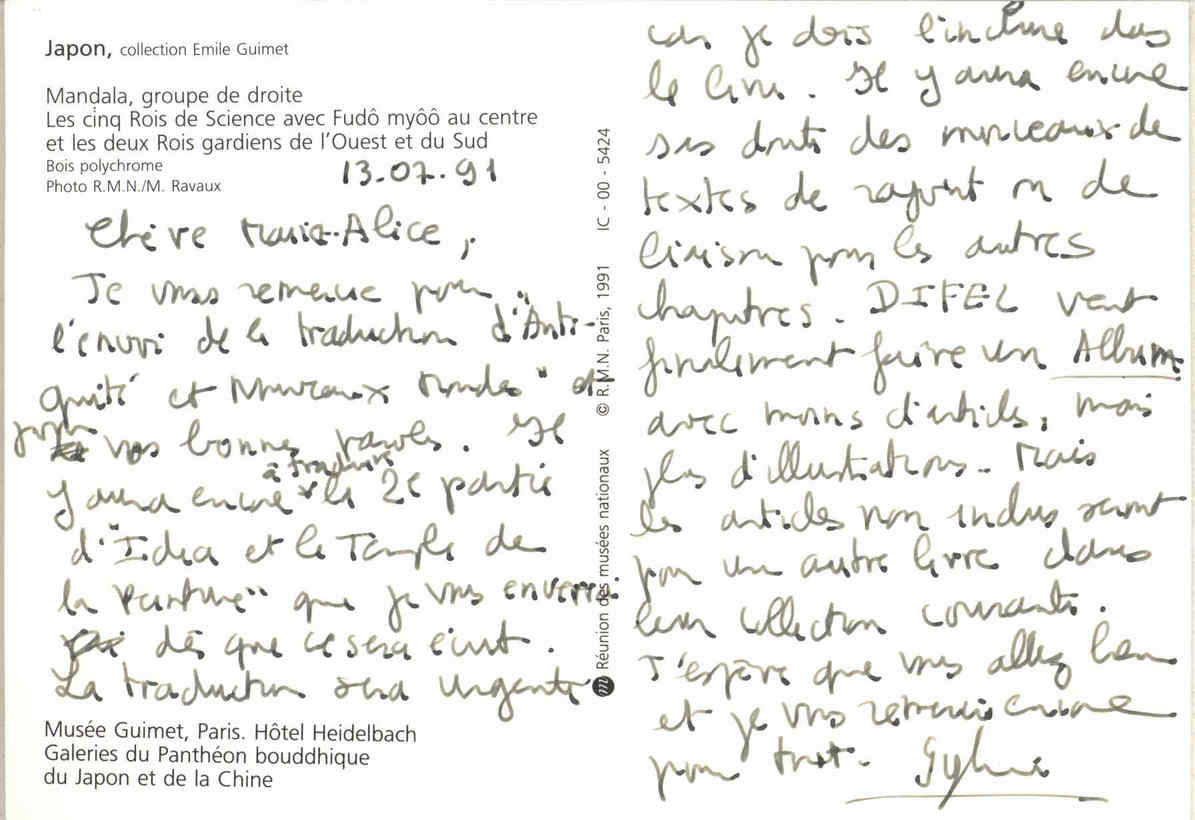 Japon, collection Emile Guimet
Mandala, groupe de droite
Les cinq Rois de Science avec Fudô myôô au centre
et les deux Rois gardiens de l'Ouest et du Sud
Bois polychrome
Photo R.M.N./M. Ravaux
13.07.91
Chère Maria-Alice,
Je vous remercie pour
l'envoi de la traduction d'"Anti-
quité et Nouveaux Mondes" et
pour vos bonnes paroles. Il
y aura encore à traduire la 2e partie
d'"Idea et le Temple de
la Peinture" que je vous enverrai
dès que ce sera écrit.
La traduction sera urgente
Musée Guimet, Paris. Hôtel Heidelbach
Galeries du Panthéon bouddhique
du Japon et de la Chine
m Réunion des musées nationaux © R.M.N. Paris, 1991 IC - 00 - 5424
car je dois l'inclure dans
le livre. Il y aura encore
sans doute des morceaux de
textes de rajout ou de
liaison pour les autres
chapitres. DIFEL veut
finalement faire un Album
avec moins d'articles, mais
plus d'illustrations. Mais
les articles non inclus seront
pour un autre livre dans
leur collection courante.
J'espère que vous allez bien
et je vous remercie encore
pour tout. Sylvie